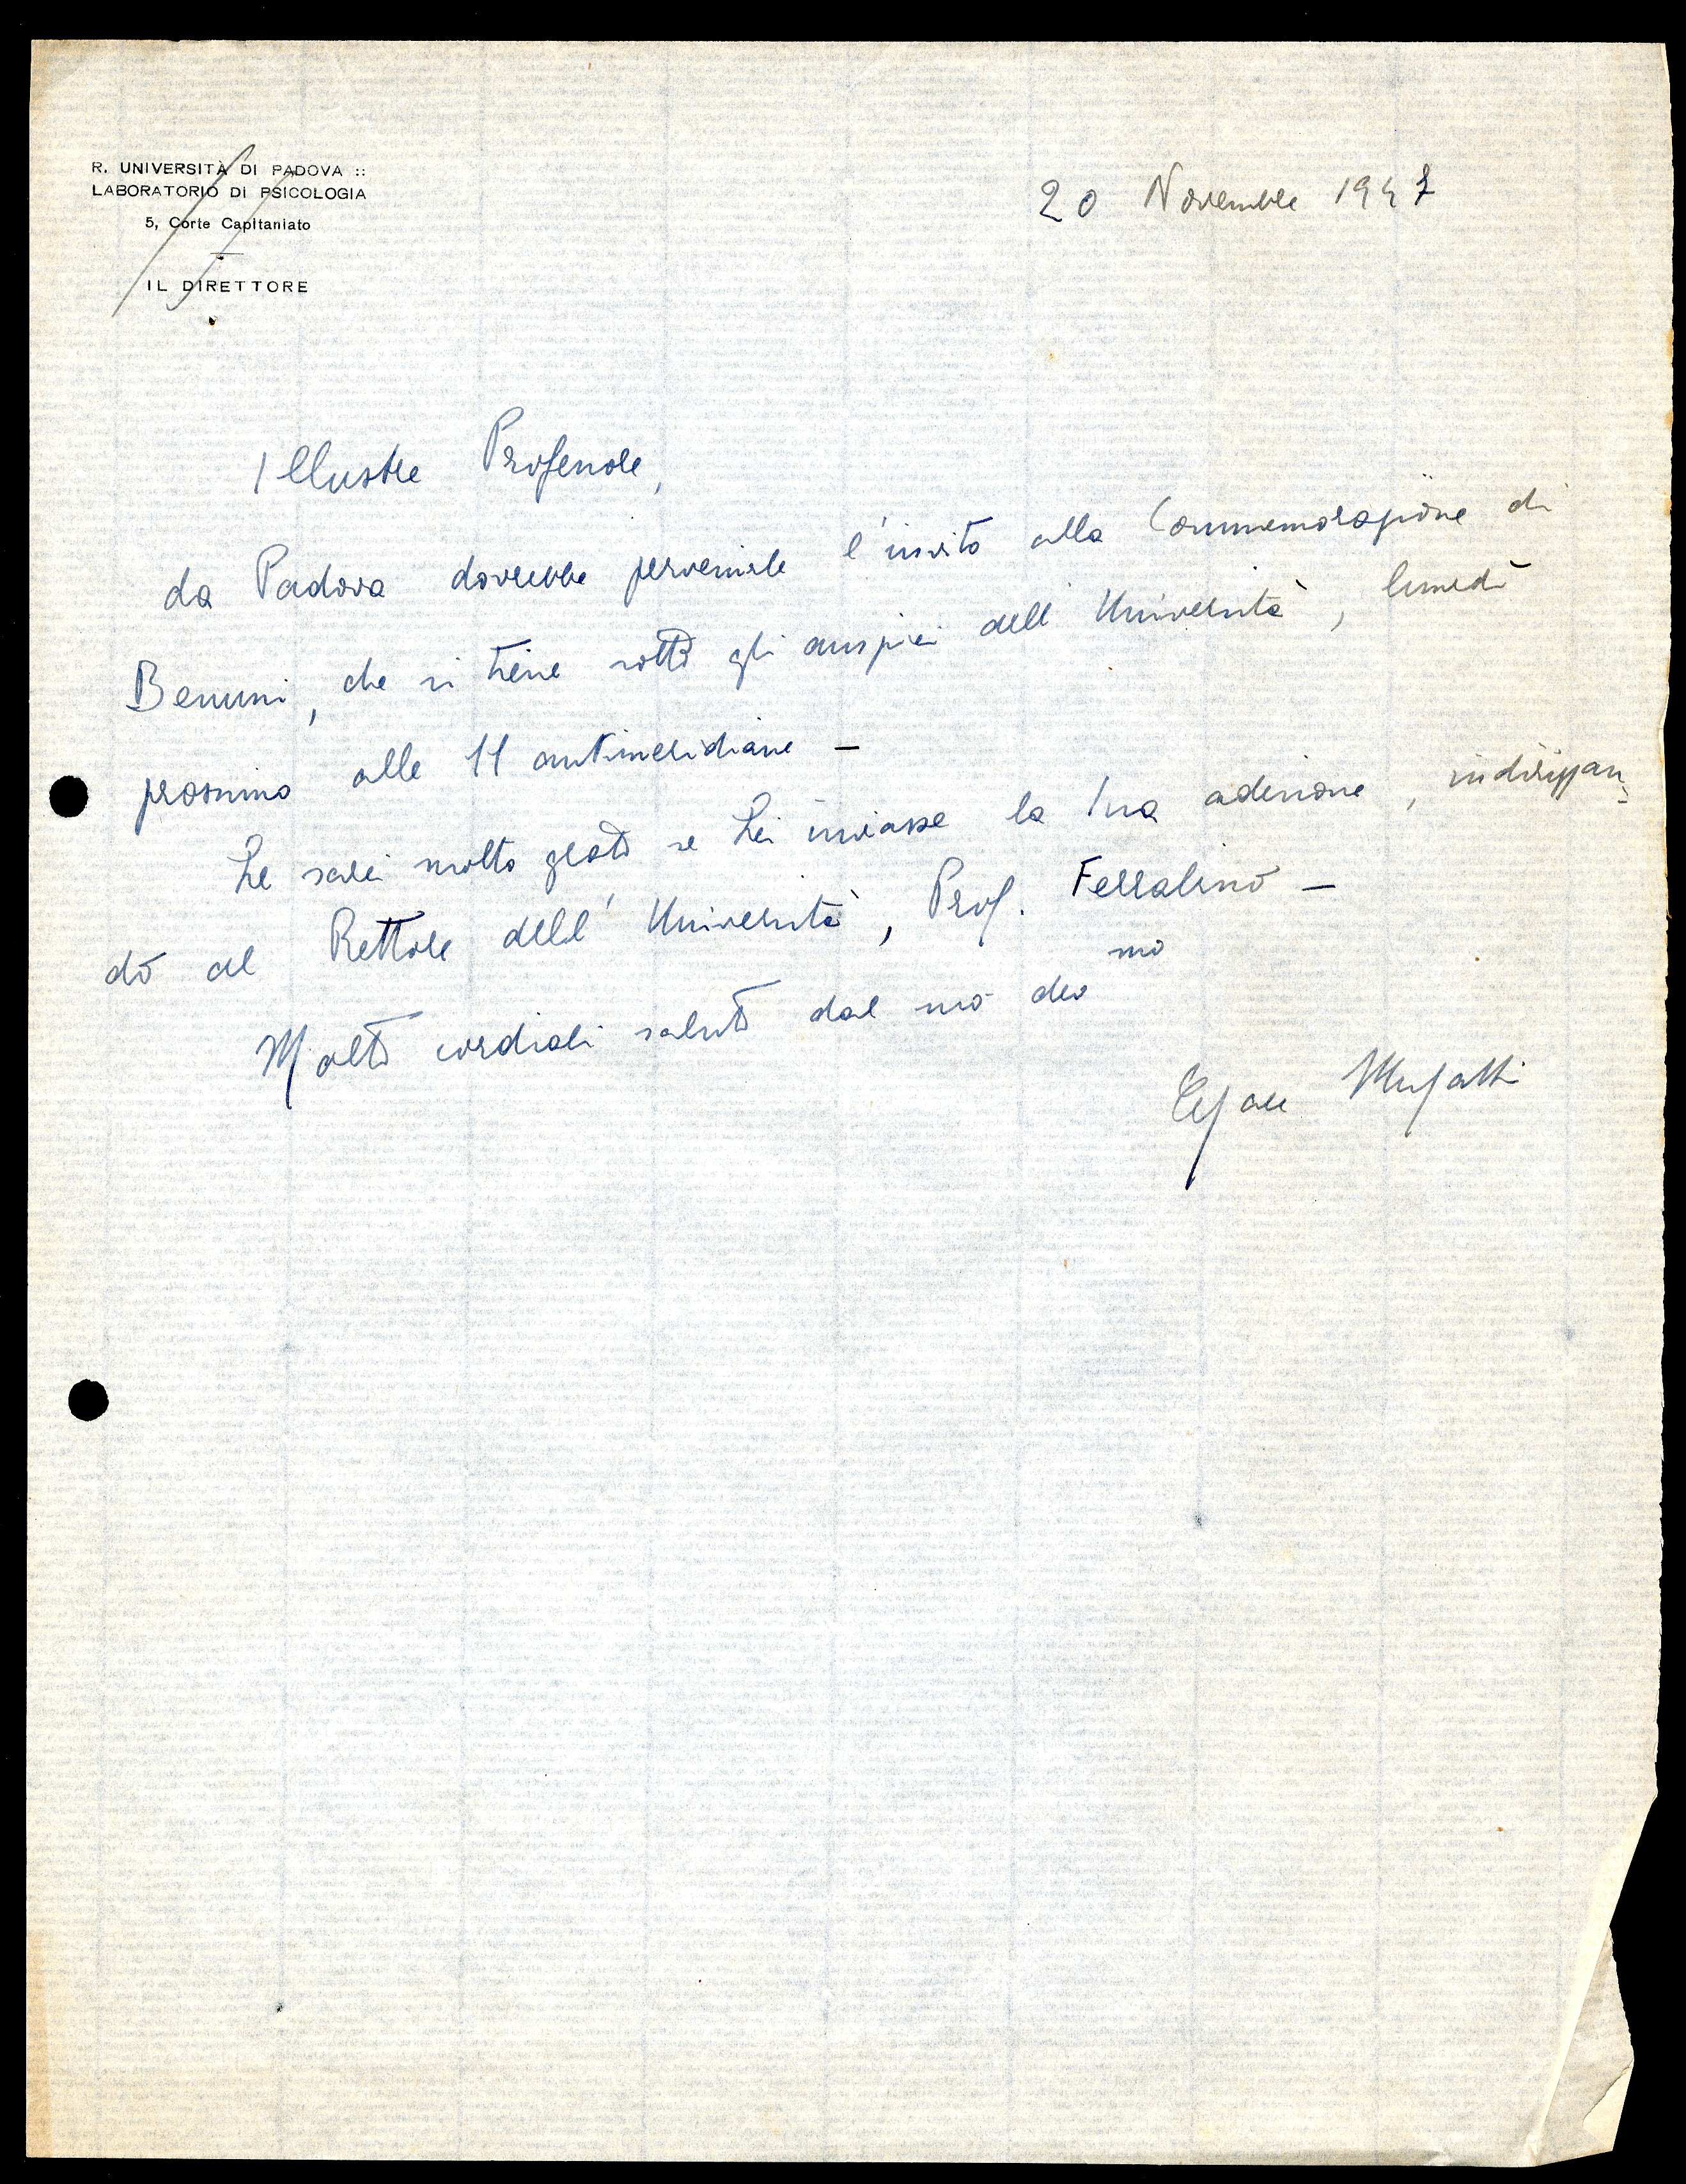 R. UNIVERSITÀ DI PADOVA ::
LABORATORIO DI PSICOLOGIA
5, Corte Capitaniato
IL DIRETTORE
20 Novembre 1947
Illustre Professore,
da Padova dovrebbe pervenirle l'invito alla Commemorazione di
Benussi, che si tiene sotto gli auspici dell'Università, lunedì
prossimo alle 11 antimeridiane –
Le sarei molto grato se Lei inviasse la Sua adesione, indirizzan-
do al Rettore dell'Università, Prof. Ferrabino –
Molti cordiali saluti dal suo dev mo
Cesare Musatti